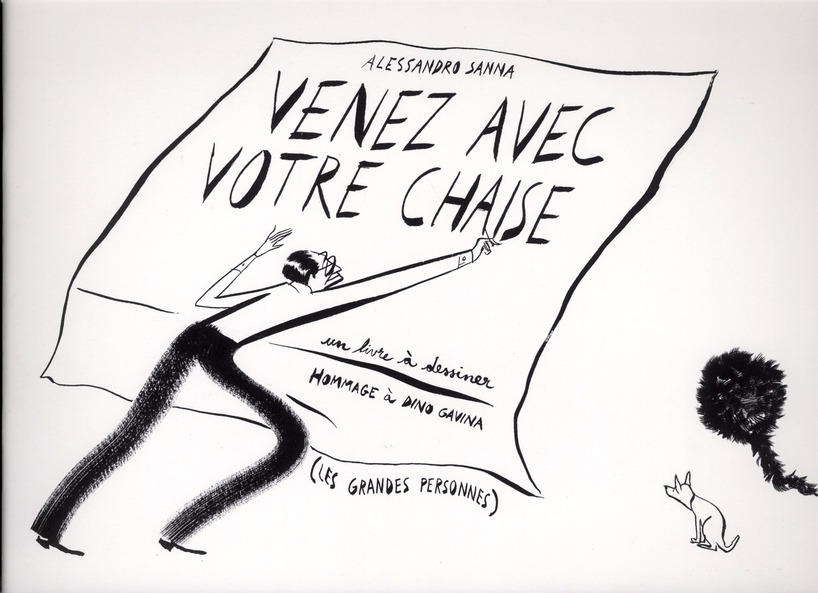 ALESSANDRO SANNA
VENEZ AVEC
VOTRE CHAISE
un livre à dessiner
HOMMAGE à DINO GAVINA
(LES GRANDES PERSONNES)